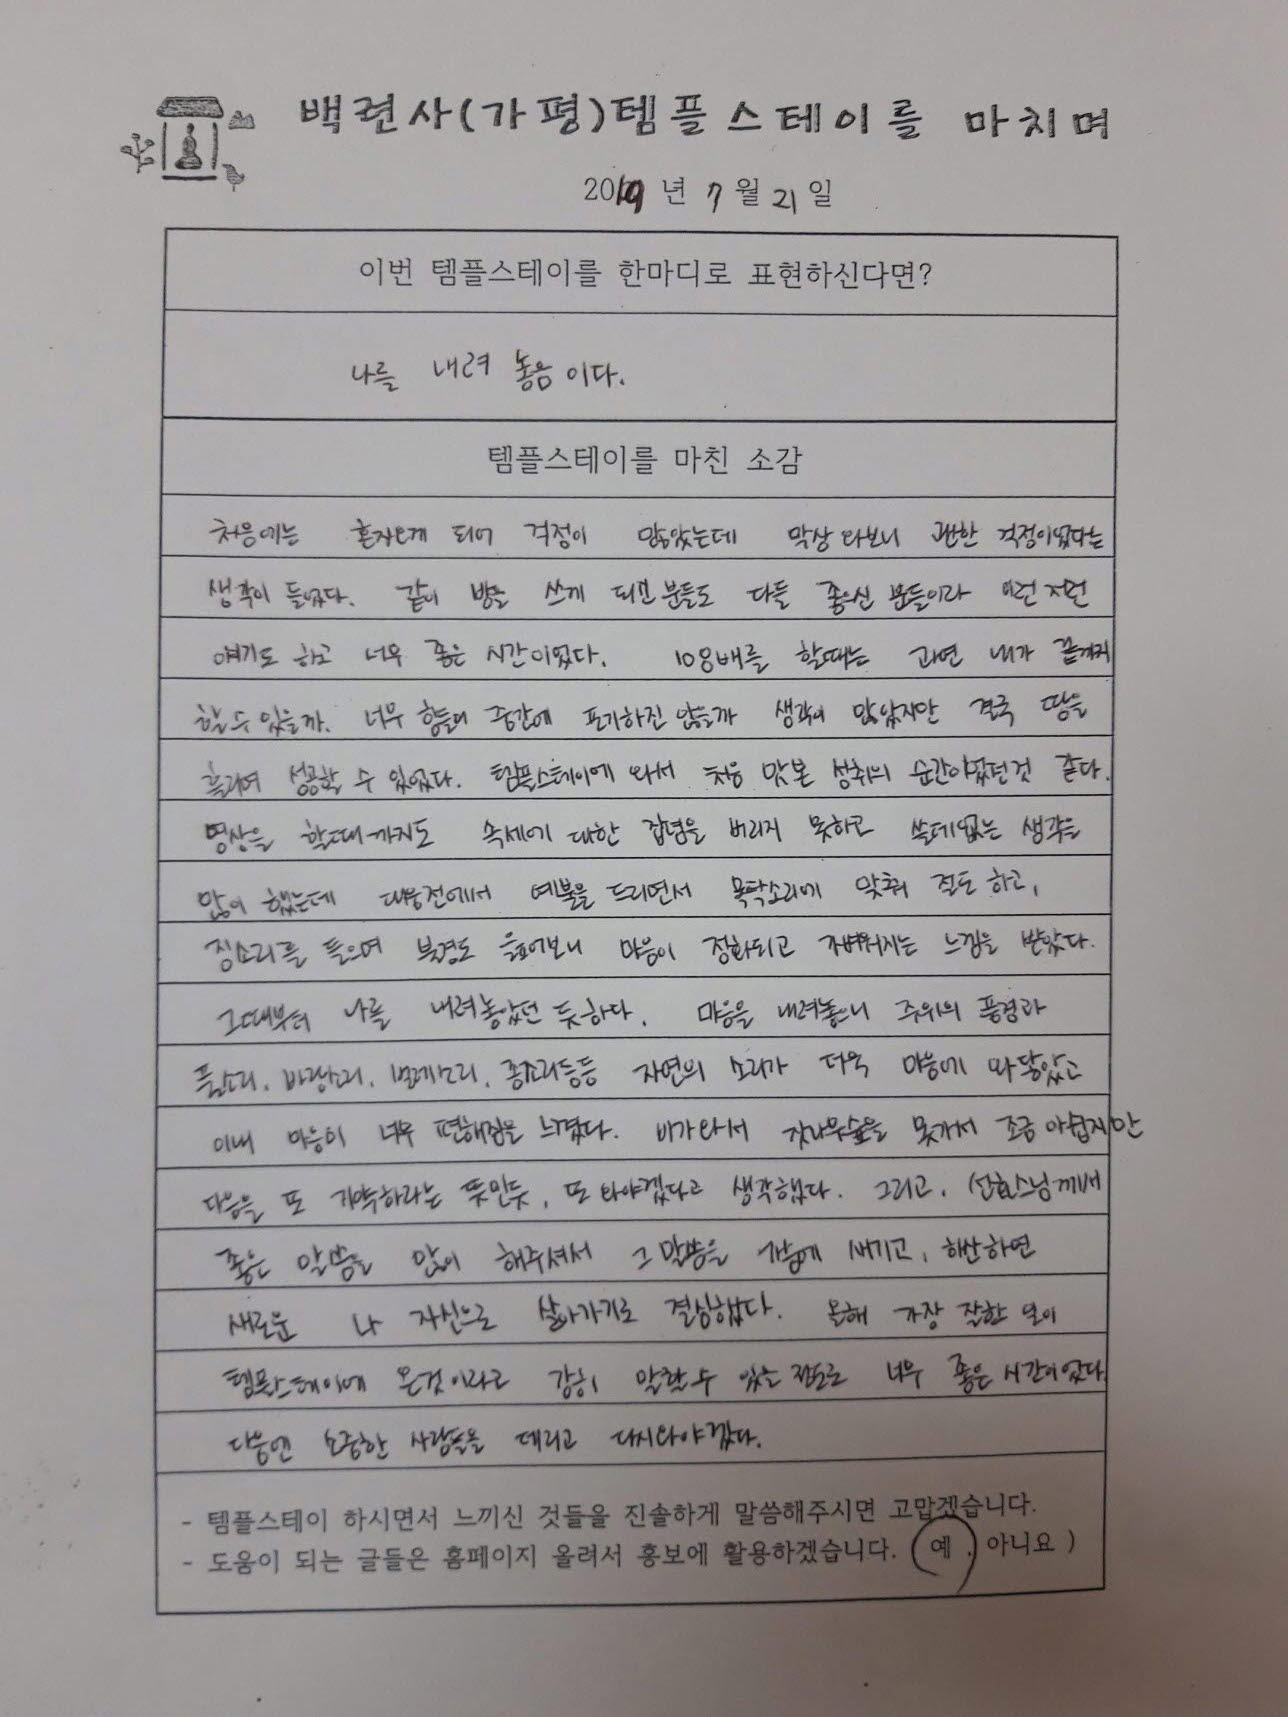 백련사(가평)템플스테이를 마치며
2019년 7월 21일
이번 템플스테이를 한마디로 표현하신다면?
나를 내려 놓음 이다.
템플스테이를 마친 소감
처음에는 혼자오게 되어 걱정이 많았는데 막상 와보니 괜한 걱정이었다는
생각이 들었다. 같이 방을 쓰게 되신 분들도 다들 좋으신 분들이라 이런 저런
얘기도 하고 너무 좋은 시간이었다. 108배를 할때는 과연 내가 끝까지
할 수 있을까. 너무 힘들어 중간에 포기하진 않을까 생각이 많았지만 결국 땀을
흘리며 성공할 수 있었다. 템플스테이에 와서 처음 맛본 성취의 순간이었던것 같다.
명상을 할때 까지도 속세에 대한 잡념을 버리지 못하고 쓸데없는 생각을
많이 했는데 대웅전에서 예불을 드리면서 목탁소리에 맞춰 절도 하고,
징소리를 들으며 불경도 읊어보니 마음이 정화되고 가벼워지는 느낌을 받았다.
그때부터 나를 내려놓았던 듯하다. 마음을 내려놓으니 주위의 풍경과
풀소리, 바람소리, 벌레소리, 종소리등등 자연의 소리가 더욱 마음에 와 닿았고
이내 마음이 너무 편해짐을 느꼈다. 비가와서 잣나무숲을 못가서 조금 아쉽지만
다음을 또 기약하라는 뜻인듯, 또 와야겠다고 생각했다. 그리고, 스님께서
좋은 말씀을 많이 해주셔서 그 말씀을 가슴에 새기고, 하산하면
새로운 나 자신으로 살아가기로 결심했다. 올해 가장 잘한 일이
템플스테이에 온것 이라고 감히 말할 수 있는 정도로 너무 좋은 시간이었다
다음엔 소중한 사람들을 데리고 다시와야겠다.
- 템플스테이 하시면서 느끼신 것들을 진솔하게 말씀해주시면 고맙겠습니다.
- 도움이 되는 글들은 홈페이지 올려서 홍보에 활용하겠습니다. ( 예 , 아니요 )